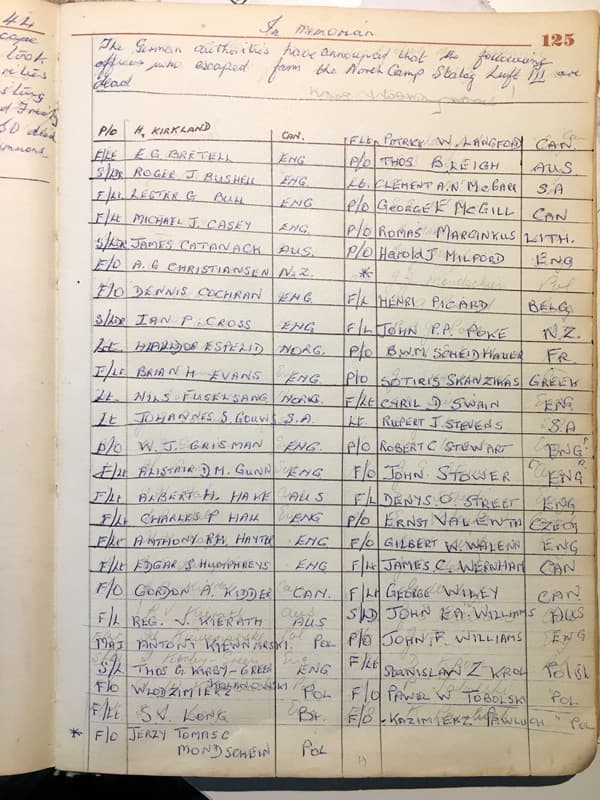 44
took
In memoriam
125
The German authorities have announced that the following
officers who escaped from the North Camp Stalag Luft III are
dead
P/O H. KIRKLAND CAN.
F/Lt E.G. BRETTELL ENG
S/Ldr ROGER J. BUSHELL ENG.
F/Lt LESTER G BULL ENG
F/Lt MICHAEL J. CASEY ENG.
S/Ldr JAMES CATANACH AUS.
F/O A.G CHRISTIANSEN N.Z.
F/O DENNIS COCHRAN ENG.
S/Ldr IAN P. CROSS ENG
Lt. ESPELID NORG.
F/Lt BRIAN H EVANS ENG.
Lt. NILS FUGELSANG NORG.
Lt JOHANNES S. GOUWS S.A.
P/O W.J. GRISMAN ENG.
F/Lt ALISTAIR D.M. GUNN ENG
F/Lt ALBERT H. HAKE AUS
F/Lt CHARLES P HALL ENG
F/Lt ANTHONY R.H. HAYTER ENG
F/Lt EDGAR S HUMPHREYS ENG
F/O GORDON A. KIDDER CAN.
F/L REG. V. KIERATH AUS
MAJ ANTONI KIEWNARSKI. POL
S/L THOS G KIRBY-GREEN ENG
F/O WLODZIMIERZ KOLANOWSKI POL
F/Lt
* F/O JERZY TOMASC
MONDSCHEIN POL
F/Lt PATRICK W. LANGFORD CAN.
P/O THOS B. LEIGH AUS.
Lt. CLEMENT A.N. McGARR S.A
P/O GEORGE E McGILL CAN
P/O ROMAS MARCINKUS LITH.
P/O Harold J. MILFORD ENG
*
F/L HENRI PICARD BELG.
F/L JOHN P.P. N.Z.
P/O B.W.M. SCHEIDHAUER FR
P/O SOTIRIS SKANZIKAS GREEK
F/Lt CYRIL D SWAIN ENG
Lt. RUPERT J. STEVENS S.A
P/O ROBERT C STEWART ENG
F/O JOHN STOWER "ENG"
F/L DENYS. O. STREET ENG
P/O ERNST VALENTA CZECH
F/O GILBERT W. WALENN ENG
F/Lt JAMES C. WERNHAM CAN
F/Lt GEORGE WILEY CAN
S/LD JOHN E.A. WILLIAMS AUS
P/O JOHN. F. WILLIAMS ENG
F/Lt STANISLAW Z KROL POLISH
F/O PAWEL W TOBOLSKI POL
F/O KAZIMIERZ PAWLUCH "POL